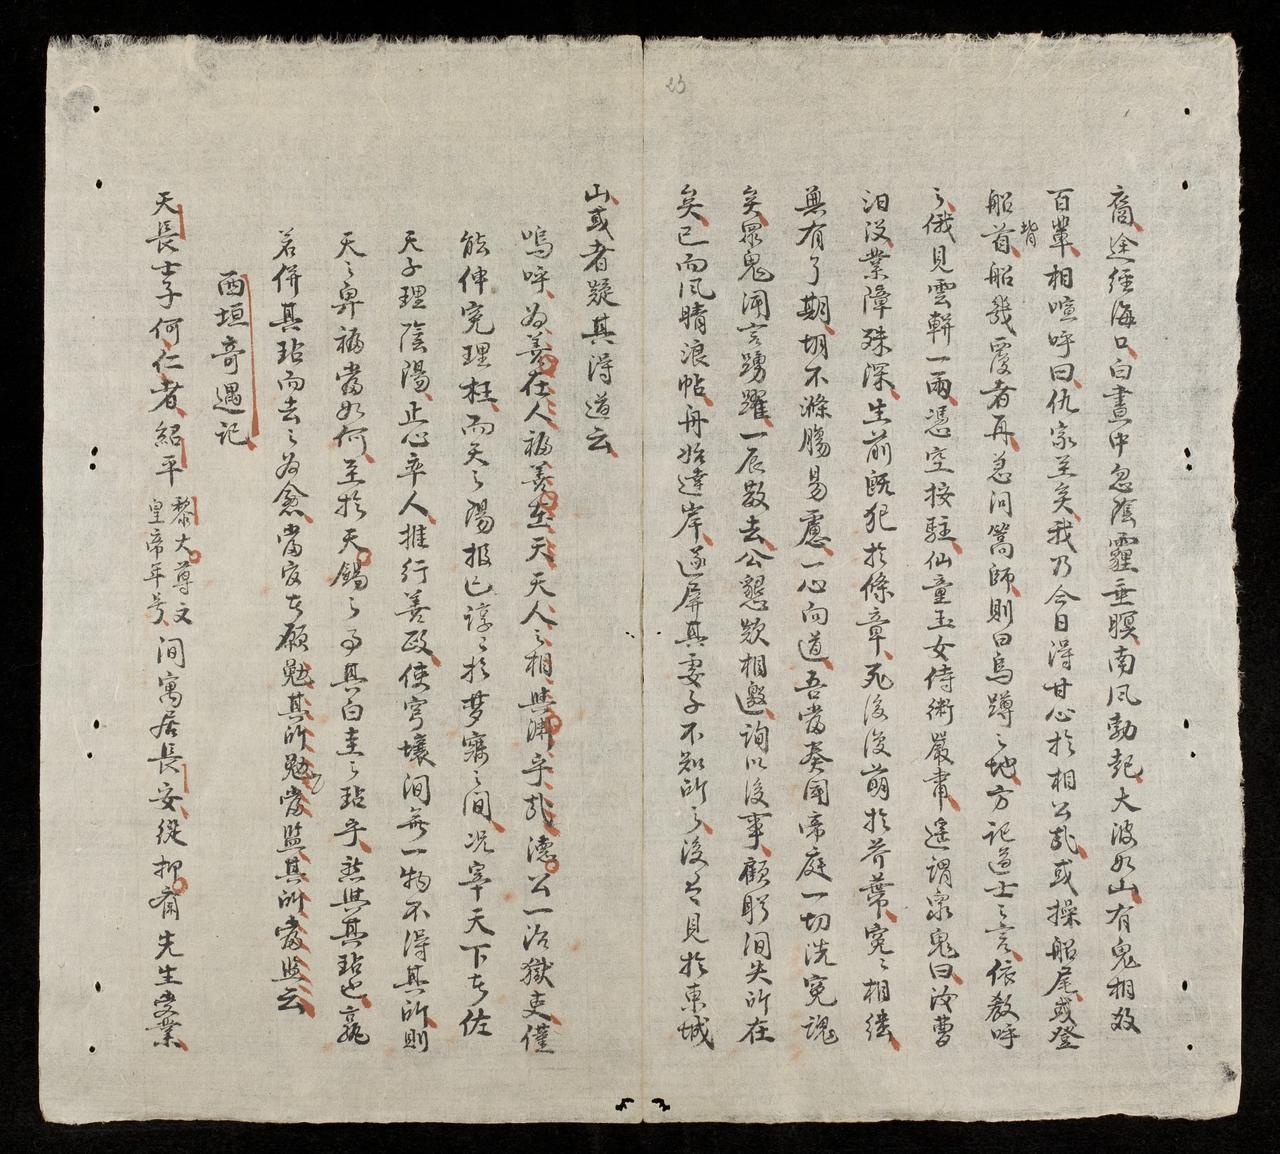 裔途經海口白晝中忽陰霾垂瞑南風勃起大波如山有鬼相数
百輩相喧呼曰仇家至矣我乃今日得甘心於相公乱或操船尾或登
船首船幾覆者再急问篙師則曰烏蹲之地方記道士之言依教呼
背
之俄見雲輧一兩憑空按駐仙童玉女侍衛嚴肅遥謂衆鬼曰汝曹
汩没業障殊深生前既犯於條章死後復萌於芥葉寃〻相繞
無有了期胡不滌腸易慮一心向道吾當奏闻帝庭一切洗寃魂
矣衆鬼闻言踴躍一辰散去公懇欵相邀詢以後事顧盻间失所在
矣已而风晴浪帖舟始達岸遂屏其妻子不知所之後人見於東城
山或者疑其得道云
嗚呼为善在人福善在天天人之相與渊乎哉德公一治獄吏僅
能伸寃理枉而天之陽报已諄〻於梦寐之间况宰天下者佐
天子理陰陽正心率人推行善政使穹壤间無一物不得其所則
天之畀福當如何至於天錫之事其白圭之玷乎愁與其玷也孰
若併其玷而去之为愈當官者願勉其所勉當監其所當監云
西垣奇遇记
天長士子何仁者紹平
黎大尊文
皇帝年号
间寓居長安從抑齋先生受業
23